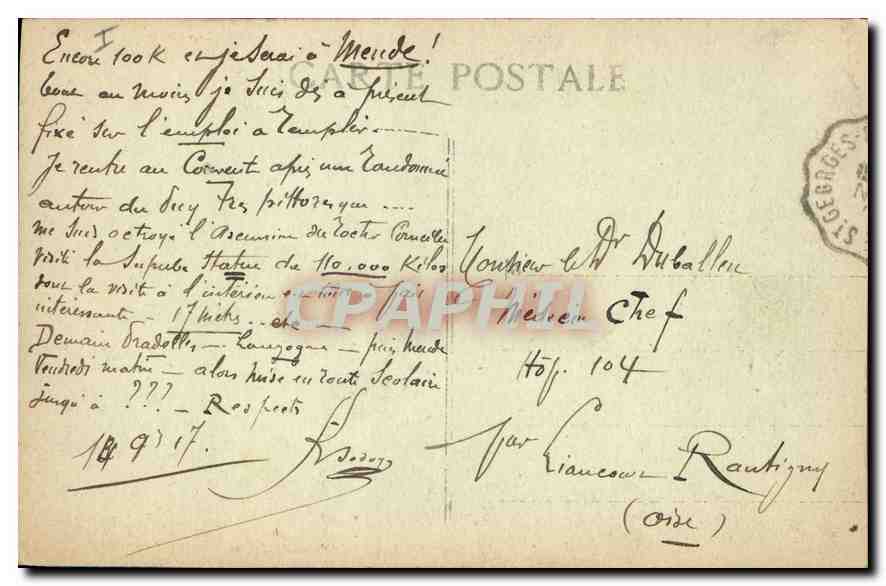 I
Encore 100 K et je serai à Mende !
CARTE POSTALE
au moins je suis dès a présent
fixé sur l'emploi à remplir
Je rentre au Couvent après une randonnée
autour du Puy très pittoresque
me suis octroyé l'Ascension du rocher Corneille
visité la superbe statue de 110.000 Kilos
dont la visite à l'intérieur
intéressante - 17 mètres
Demain Pradelles - Langogne - puis Mende
Vendredi matin - alors mise en route Scolaire
jusqu'à ??? - Respects
9 17.
Monsieur le Dr Duballen
Médecin Chef
Hôp. 104
par Liancourt Rantigny
(Oise)
ST GEORGES
CPAPHIL